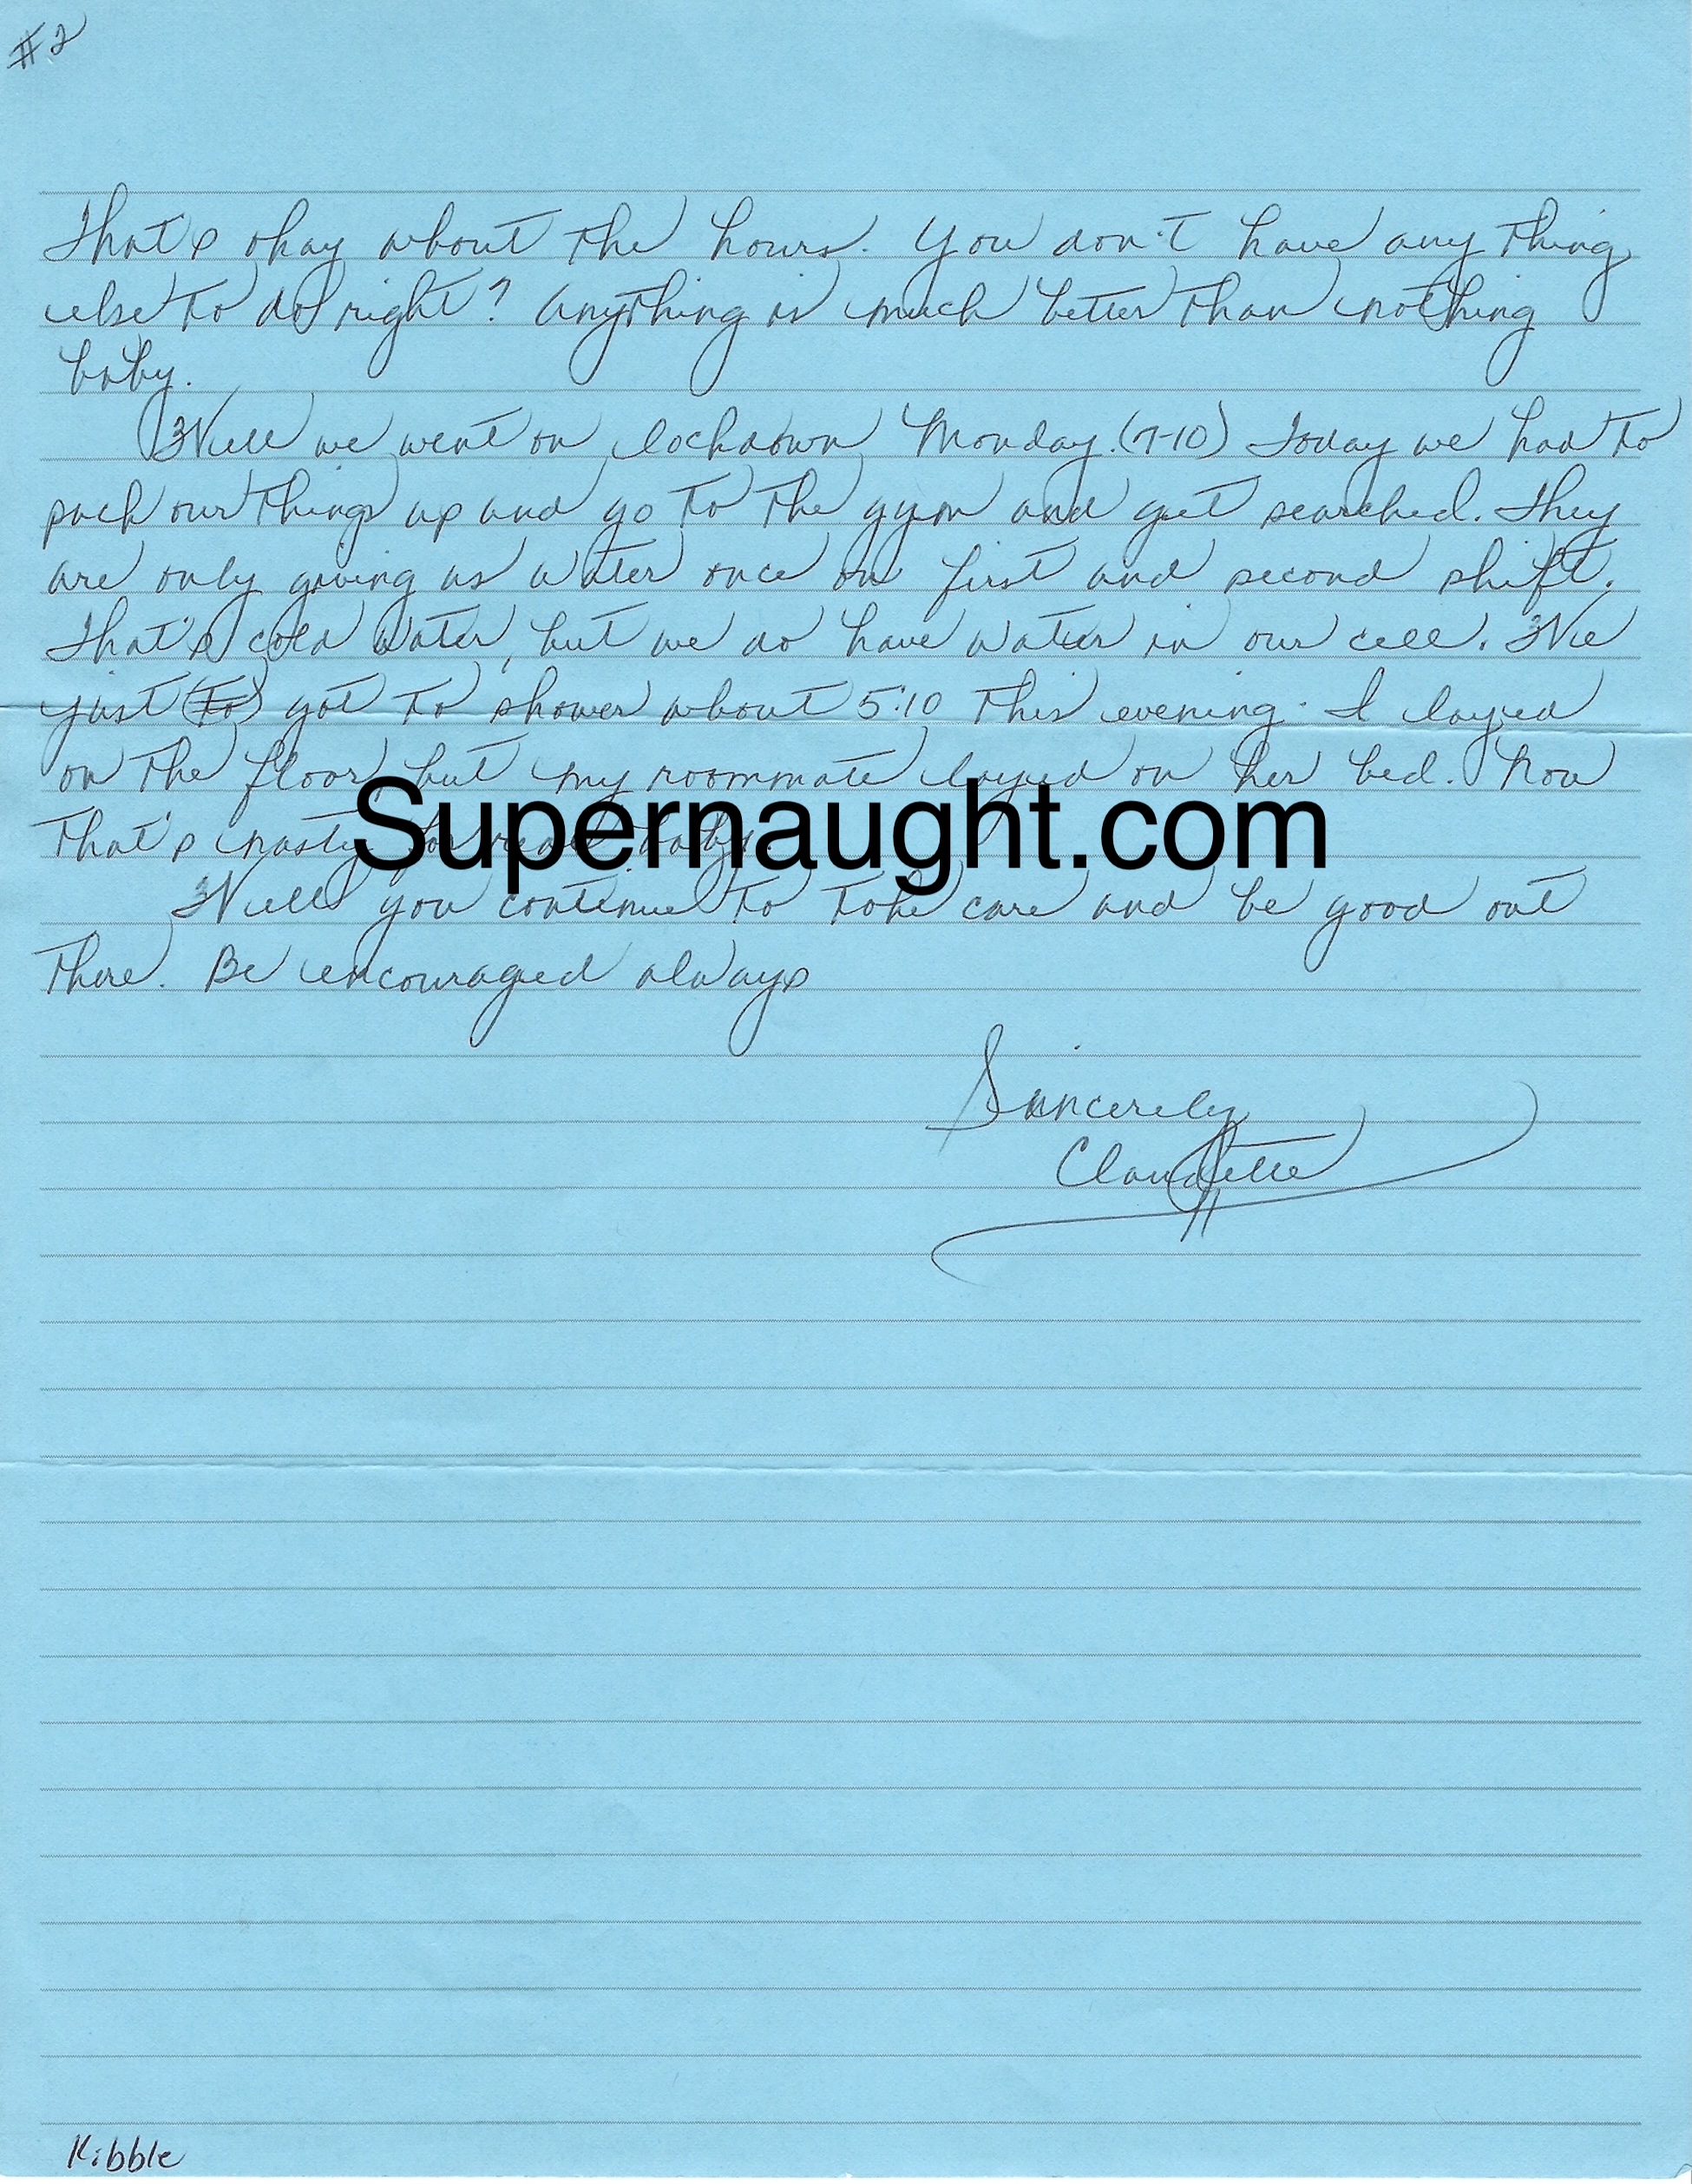 #2
That's okay about the hours. You don't have any thing
else to do right? Anything is much better than nothing
baby.
Well we went on lockdown Monday. (7-10) Today we had to
pack our things up and go to the gym and get searched. They
are only giving us water once on first and second shift.
That's cold water, but we do have water in our cell. We
just (to) got to shower about 5:10 this evening. I layed
on the floor, but my roommate layed on her bed. Now
that's nasty for real baby.
Supernaught.com
Well you continue to take care and be good out
there. Be encouraged always
Sincerely
Claudette
Kibble